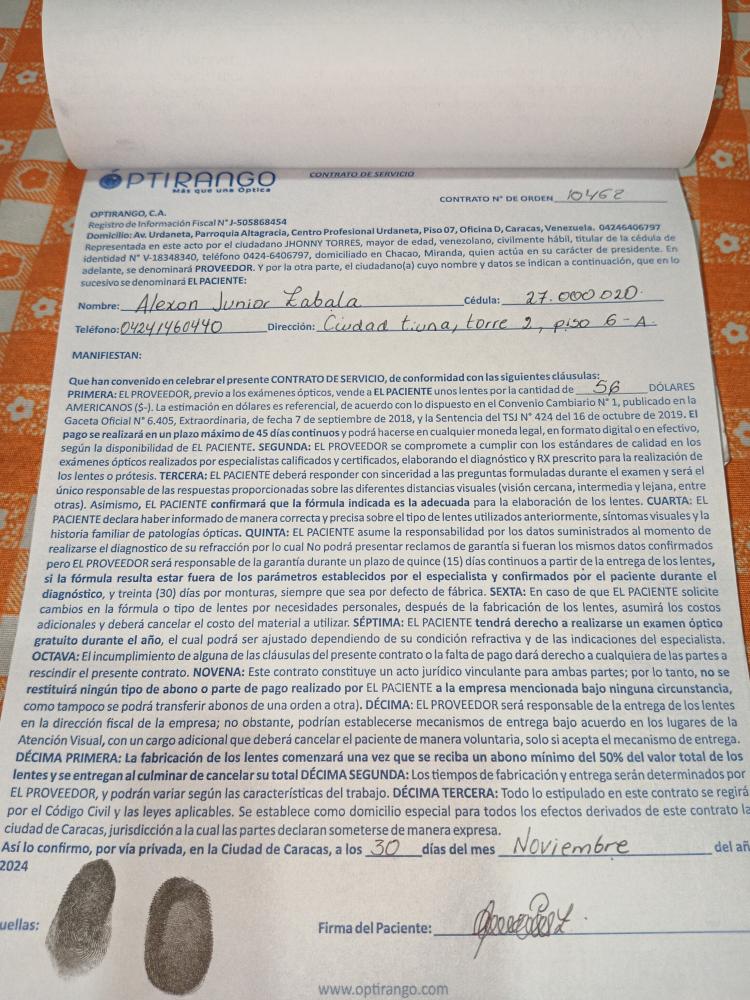 OPTIRANGO
Más que una Óptica
CONTRATO DE SERVICIO
CONTRATO N° DE ORDEN 10462
OPTIRANGO, C.A.
Registro de Información Fiscal N° J-505868454
Domicilio: Av. Urdaneta, Parroquia Altagracia, Centro Profesional Urdaneta, Piso 07, Oficina D, Caracas, Venezuela. 04246406797
Representada en este acto por el ciudadano JHONNY TORRES, mayor de edad, venezolano, civilmente hábil, titular de la cédula de
identidad N° V-18348340, teléfono 0424-6406797, domiciliado en Chacao, Miranda, quien actúa en su carácter de presidente. En
adelante, se denominará PROVEEDOR. Y por la otra parte, el ciudadano(a) cuyo nombre y datos se indican a continuación, que en lo
sucesivo se denominará EL PACIENTE:
Nombre: Alexon Junior Zabala Cédula: 27.000 020.
Teléfono: 04241460440 Dirección: Ciudad tiuna, torre 2, piso 6-A.
MANIFIESTAN:
Que han convenido en celebrar el presente CONTRATO DE SERVICIO, de conformidad con las siguientes cláusulas:
PRIMERA: EL PROVEEDOR, previo a los exámenes ópticos, vende a EL PACIENTE unos lentes por la cantidad de 56 DÓLARES
AMERICANOS ($-). La estimación en dólares es referencial, de acuerdo con lo dispuesto en el Convenio Cambiario N° 1, publicado en la
Gaceta Oficial N° 6.405, Extraordinaria, de fecha 7 de septiembre de 2018, y la Sentencia del TSJ N° 424 del 16 de octubre de 2019. El
pago se realizará en un plazo máximo de 45 días continuos y podrá hacerse en cualquier moneda legal, en formato digital o en efectivo,
según la disponibilidad de EL PACIENTE. SEGUNDA: EL PROVEEDOR se compromete a cumplir con los estándares de calidad en los
exámenes ópticos realizados por especialistas calificados y certificados, elaborando el diagnóstico y RX prescrito para la realización de
los lentes o prótesis. TERCERA: EL PACIENTE deberá responder con sinceridad a las preguntas formuladas durante el examen y será el
único responsable de las respuestas proporcionadas sobre las diferentes distancias visuales (visión cercana, intermedia y lejana, entre
otras). Asimismo, EL PACIENTE confirmará que la fórmula indicada es la adecuada para la elaboración de los lentes. CUARTA: EL
PACIENTE declara haber informado de manera correcta y precisa sobre el tipo de lentes utilizados anteriormente, síntomas visuales y la
historia familiar de patologías ópticas. QUINTA: EL PACIENTE asume la responsabilidad por los datos suministrados al momento de
realizarse el diagnostico de su refracción por lo cual No podrá presentar reclamos de garantía si fueran los mismos datos confirmados
pero EL PROVEEDOR será responsable de la garantía durante un plazo de quince (15) días continuos a partir de la entrega de los lentes,
si la fórmula resulta estar fuera de los parámetros establecidos por el especialista y confirmados por el paciente durante el
diagnóstico, y treinta (30) días por monturas, siempre que sea por defecto de fábrica. SEXTA: En caso de que EL PACIENTE solicite
cambios en la fórmula o tipo de lentes por necesidades personales, después de la fabricación de los lentes, asumirá los costos
adicionales y deberá cancelar el costo del material a utilizar. SÉPTIMA: EL PACIENTE tendrá derecho a realizarse un examen óptico
gratuito durante el año, el cual podrá ser ajustado dependiendo de su condición refractiva y de las indicaciones del especialista.
OCTAVA: El incumplimiento de alguna de las cláusulas del presente contrato o la falta de pago dará derecho a cualquiera de las partes a
rescindir el presente contrato. NOVENA: Este contrato constituye un acto jurídico vinculante para ambas partes; por lo tanto, no se
restituirá ningún tipo de abono o parte de pago realizado por EL PACIENTE a la empresa mencionada bajo ninguna circunstancia,
como tampoco se podrá transferir abonos de una orden a otra). DÉCIMA: EL PROVEEDOR será responsable de la entrega de los lentes
en la dirección fiscal de la empresa; no obstante, podrían establecerse mecanismos de entrega bajo acuerdo en los lugares de la
Atención Visual, con un cargo adicional que deberá cancelar el paciente de manera voluntaria, solo si acepta el mecanismo de entrega.
DÉCIMA PRIMERA: La fabricación de los lentes comenzará una vez que se reciba un abono mínimo del 50% del valor total de los
lentes y se entregan al culminar de cancelar su total DÉCIMA SEGUNDA: Los tiempos de fabricación y entrega serán determinados por
EL PROVEEDOR, y podrán variar según las características del trabajo. DÉCIMA TERCERA: Todo lo estipulado en este contrato se regirá
por el Código Civil y las leyes aplicables. Se establece como domicilio especial para todos los efectos derivados de este contrato la
ciudad de Caracas, jurisdicción a la cual las partes declaran someterse de manera expresa.
Así lo confirmo, por vía privada, en la Ciudad de Caracas, a los 30 días del mes Noviembre del añ
2024
uellas:
Firma del Paciente:
www.optirango.com